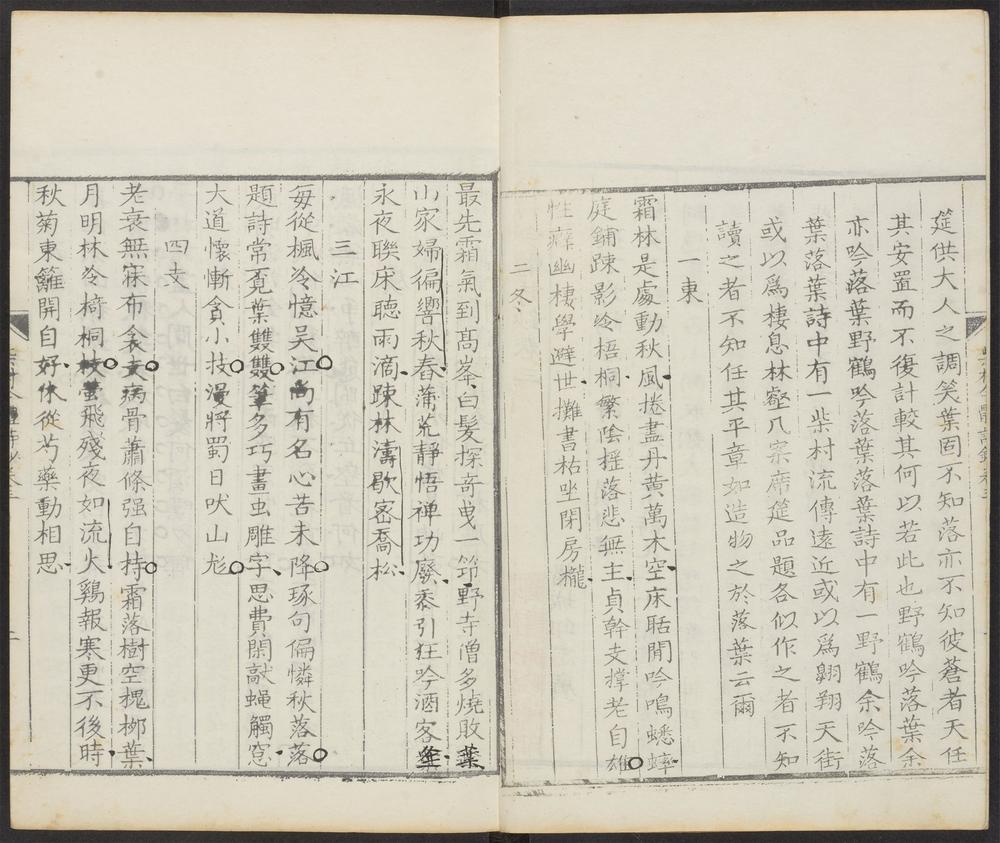 筵供大人之調笑葉固不知落亦不知彼蒼者天任
其安置而不復計較其何以若此也野鶴吟落葉余
亦吟落葉野鶴吟落葉落葉詩中有一野鶴余吟落
葉落葉詩中有一柴村流傳遠近或以爲翺翔天街
或以爲棲息林壑几案席筵品題各似作之者不知
讀之者不知任其平章如造物之於落葉云爾
一東
霜林是處動秋風捲盡丹黄萬木空床聒閒吟鳴蟋蟀
庭鋪踈影冷梧桐繁陰揺落悲無主貞幹支撑老自雄
性癖幽棲學避世攤書枯坐閉房櫳
二冬
最先霜氣到髙峯白髪探竒曵一笻野寺僧多燒敗葉
山家婦徧響秋舂蒲荒静悟禅功廢黍引狂吟酒客
永夜聯床聽雨滴踈林濤歇宻喬松
三江
每從楓冷憶吴江尚有名心苦未降琢句偏憐秋落落
題詩常覔葉雙雙筆多巧畫虫雕字思費閑敲蝇觸窓
大道懷慚貪小技漫將蜀日吠山尨
四支
老衰無寐布衾支病骨蕭條强自持霜落樹空槐栁葉
月明林冷椅桐枝螢飛殘夜如流火鷄報寒更不後時
秋菊東籬開自好休從芍藥動相思